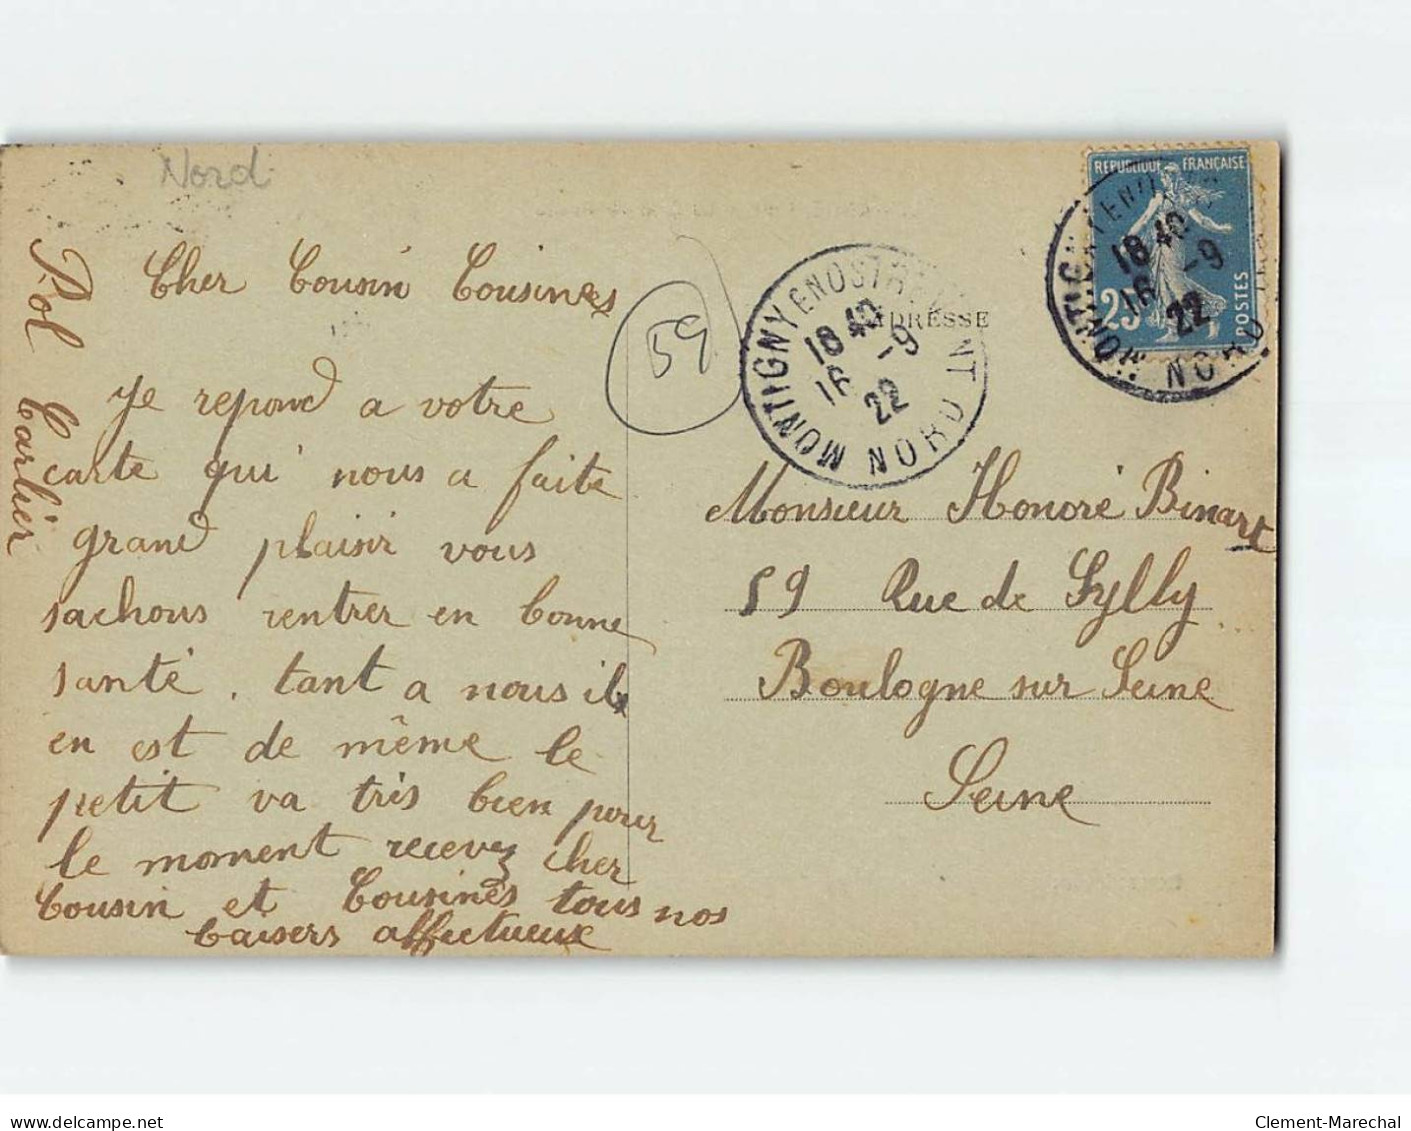 Nord
Cher Cousin Cousines
je repond a votre
carte qui nous a faite
grand plaisir vous
sachons rentrer en bonne
santé. tant a nous il
en est de même le
petit va très bien pour
le moment recevez cher
Cousin et Cousines tous nos
baisers affectueux
Pol Carlier
59
MONTIGNY EN OSTREVENT
18 40
16 -9
22
NORD
ADRESSE
REPUBLIQUE FRANÇAISE
25
POSTES
MONTIGNY EN
18 40
16 -9
22
NORD
Monsieur Honoré Binart
59 Rue de Sylly
Boulogne sur Seine
Seine
www.delcampe.net
Clement-Marechal